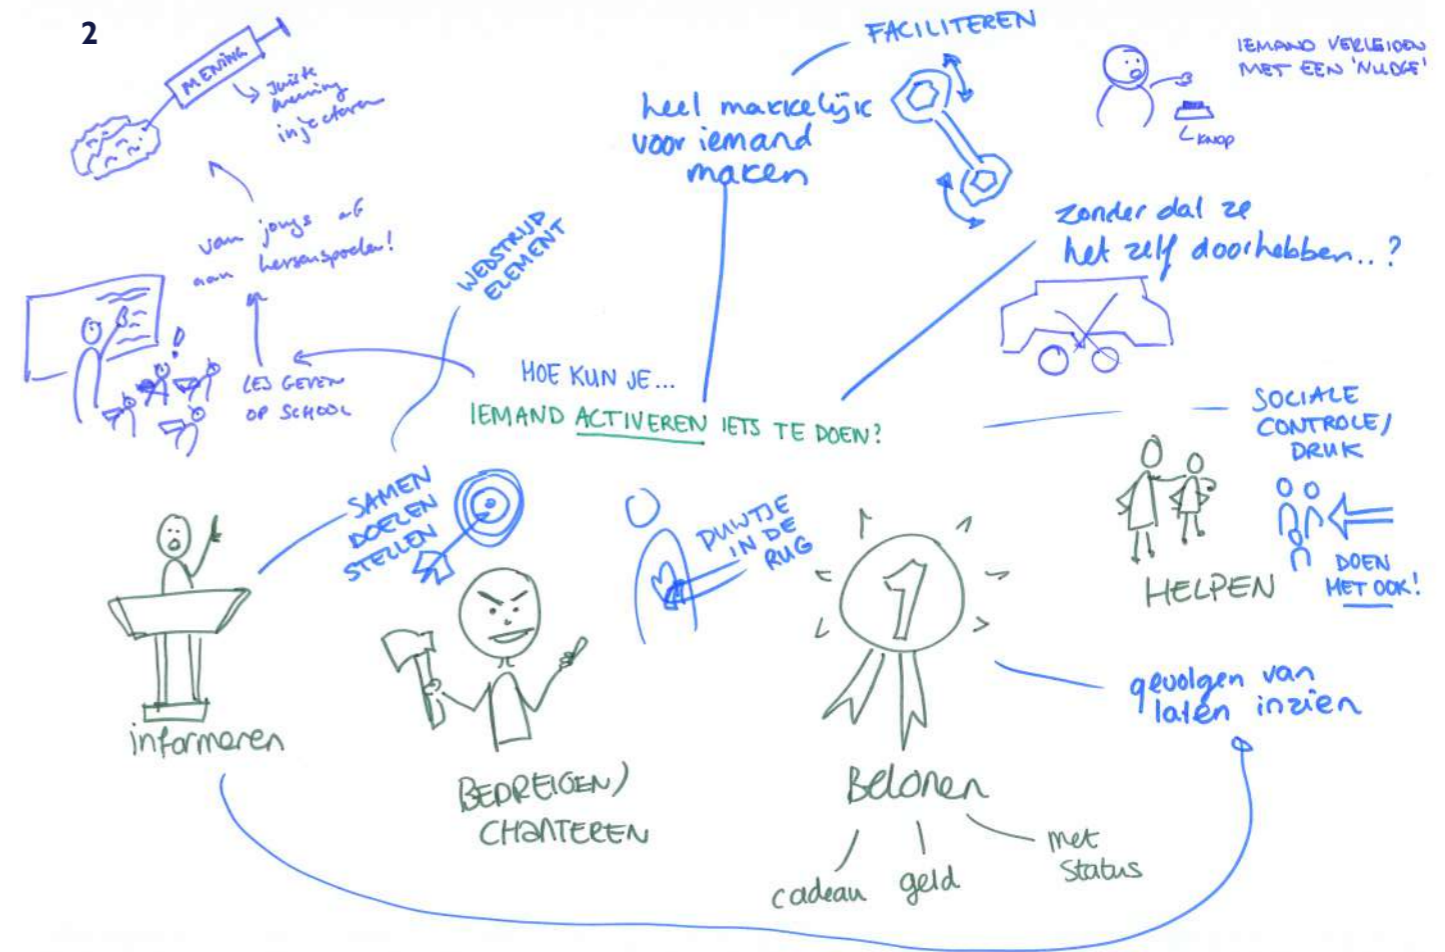 2
MENING
Juiste
mening
injecteren
van jongs af
aan hersenspoelen!
LES GEVEN
OP SCHOOL
WEDSTRIJD
ELEMENT
FACILITEREN
heel makkelijk
voor iemand
maken
IEMAND VERLEIDEN
MET EEN 'NUDGE'
KNOP
zonder dat ze
het zelf doorhebben..?
HOE KUN JE...
IEMAND ACTIVEREN IETS TE DOEN?
SOCIALE
CONTROLE/
DRUK
DOEN
HET OOK!
HELPEN
SAMEN
DOELEN
STELLEN
DUWTJE
IN DE
RUG
1
informeren
BEDREIGEN/
CHANTEREN
Belonen
cadeau
geld
met
status
gevolgen van
laten inzien